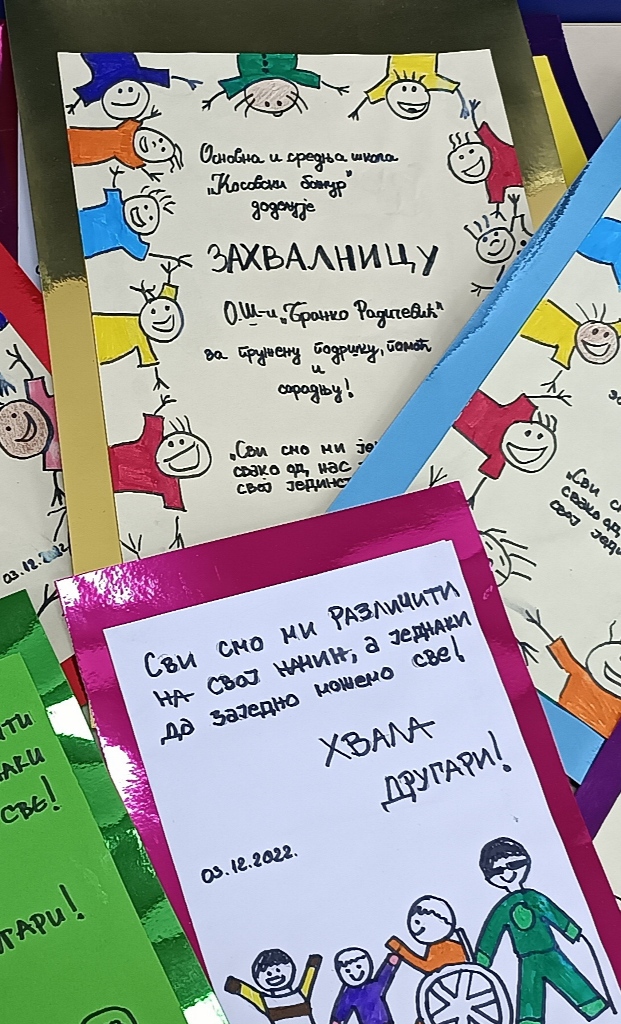 Основна и средња школа
„Косовски божур"
додељује
ЗАХВАЛНИЦУ
О.Ш-и „Бранко Радичевић"
за пружену подршку, помоћ
и
сарадњу!
„Сви смо ми
свако од нас
свој
03.12.202
„Сви
свако од
свој
Сви смо ми РАЗЛИЧИТИ
НА СВОЈ НАЧИН, А ЈЕДНАКИ
ДА ЗАЈЕДНО МОЖЕМО СВЕ!
ХВАЛА
ДРУГАРИ!
03.12.2022.
СВЕ!